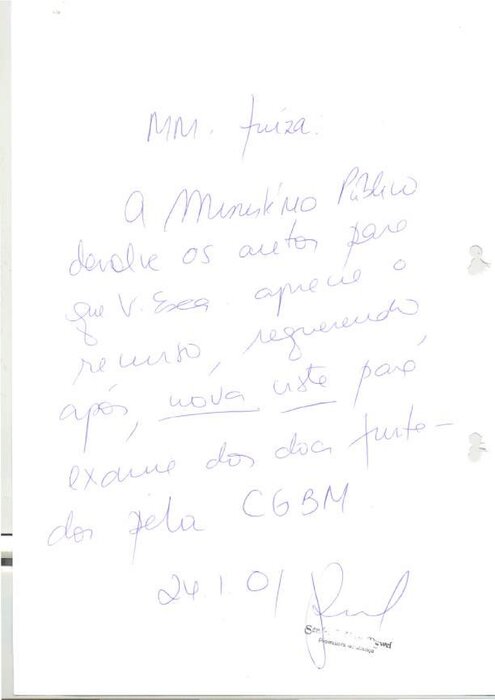 MM. Juíza:
O Ministério Público
devolve os autos para
que V. Exea. aprecie o
recurso, requerendo
após, nova vista para
exame dos docs junta-
dos pela CGBM
24.1.01
Promotora de Justiça